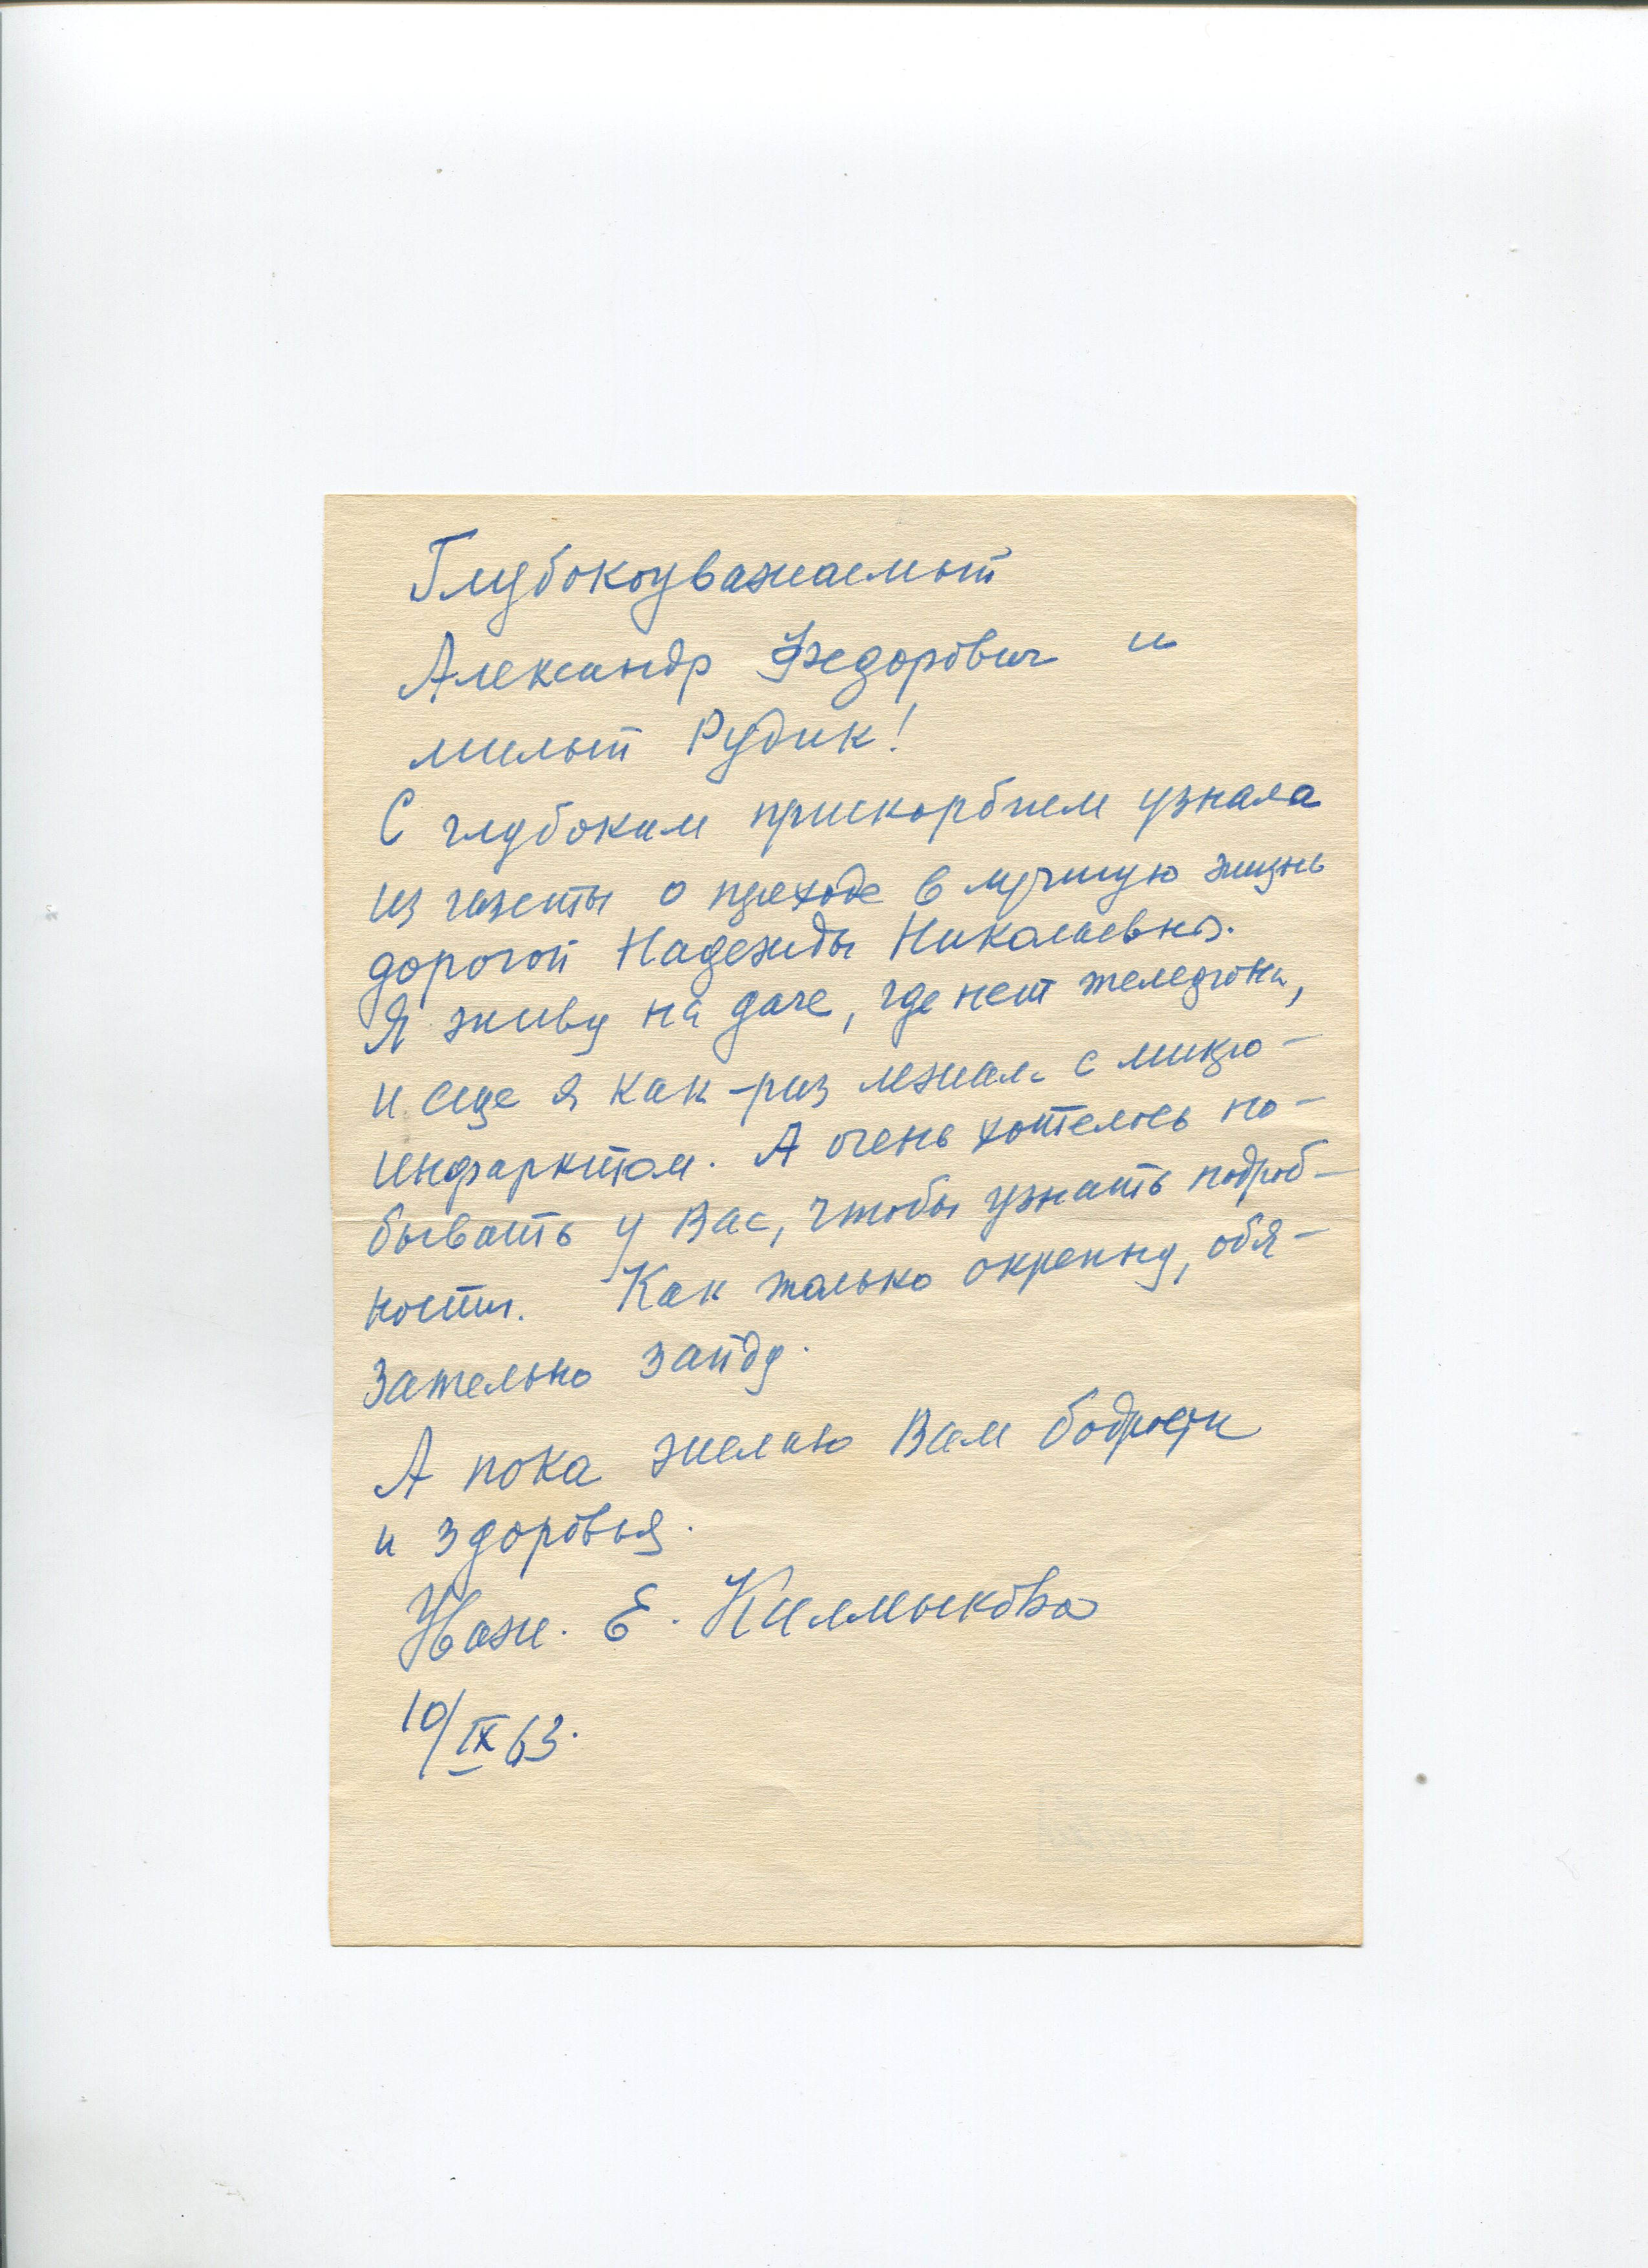 Глубокоуважаемый
Александр Федорович и
милый Рудик!
С глубоким прискорбием узнала
из газеты о преходе в лучшую жизнь
дорогой Надежды Николаевны.
Я живу на даче, где нет телефона,
и еще я как-раз лежала с микро-
инфарктом. А очень хотелось по-
бывать у Вас, чтобы узнать подроб-
ности. Как только окрепну, обя-
зательно зайду.
А пока желаю Вам бодрости
и здоровья.
Уваж. Е. Калмыкова
10/IX 63.